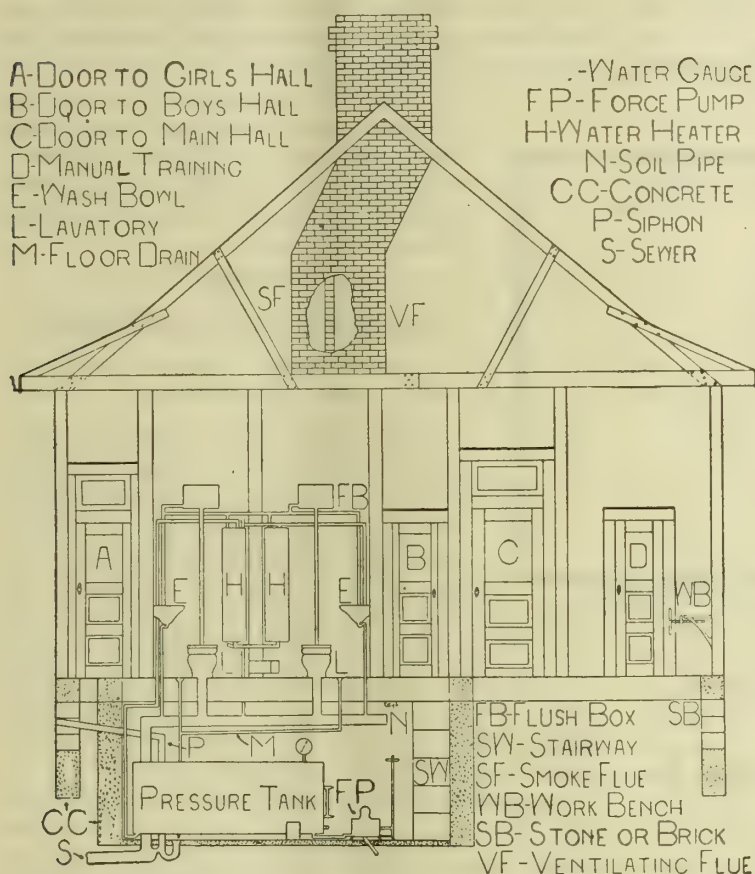 A-DOOR TO GIRLS HALL
B-DOOR TO BOYS HALL
C-DOOR TO MAIN HALL
D-MANUAL TRAINING
E-WASH BOWL
L-LAVATORY
M-FLOOR DRAIN
.-WATER GAUGE
FP-FORCE PUMP
H-WATER HEATER
N-SOIL PIPE
CC-CONCRETE
P-SIPHON
S-SEWER
SF
VF
FB
A
H H
B
C
D
E
E
WB
L
L
P
M
N
PRESSURE TANK
FP
SW
CC
S
FB-FLUSH BOX
SB
SW-STAIRWAY
SF-SMOKE FLUE
WB-WORK BENCH
SB-STONE OR BRICK
VF-VENTILATING FLUE